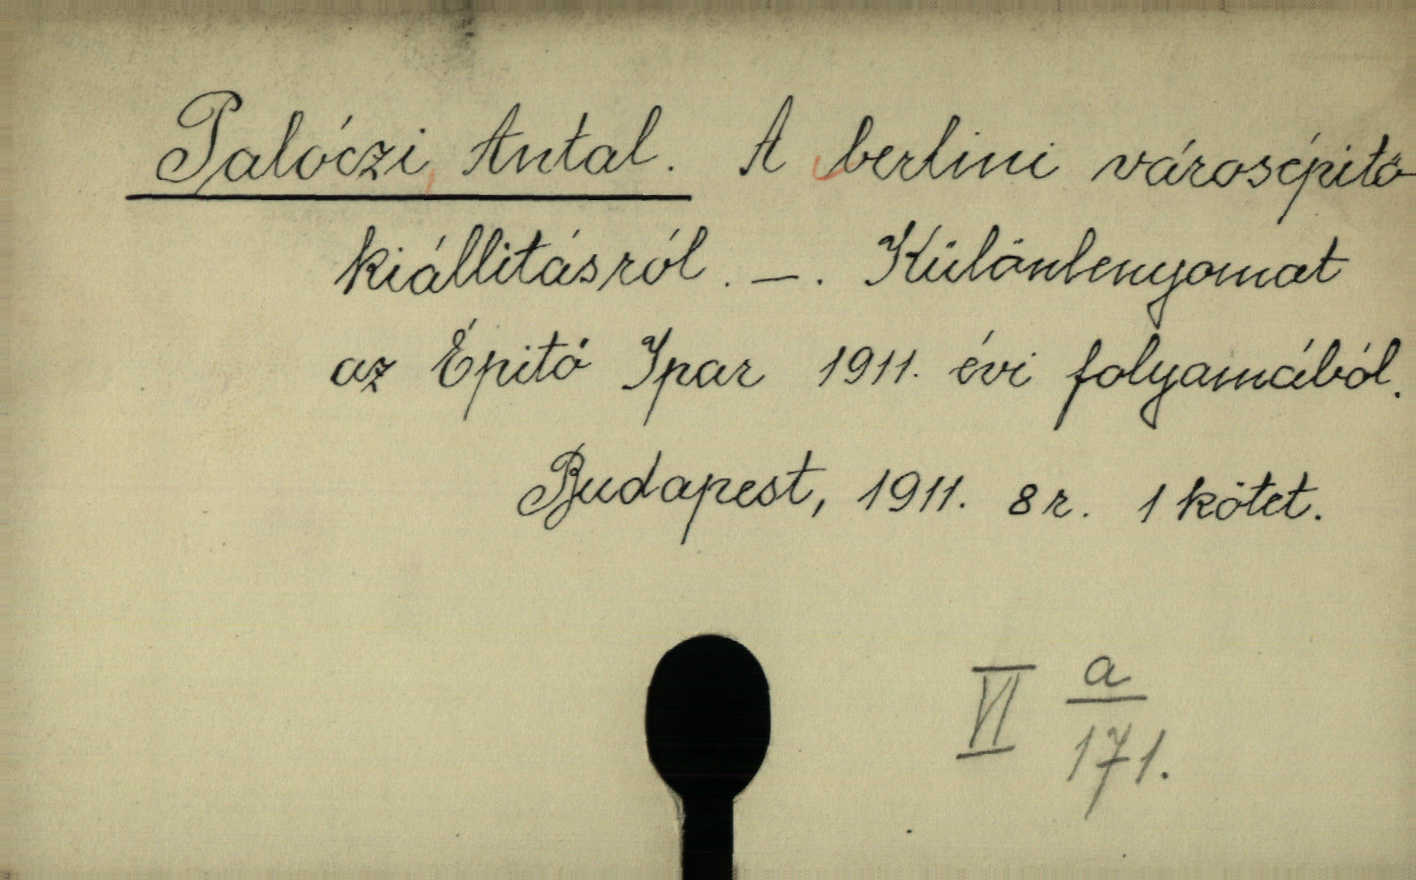 Palóczi Antal. A berlini városépitö
kiállitásról. —. Különlenyomat
az Épitő Ipar 1911. évi folyamából.
Budapest, 1911. 8 r. 1 kötet.
VI a/171.